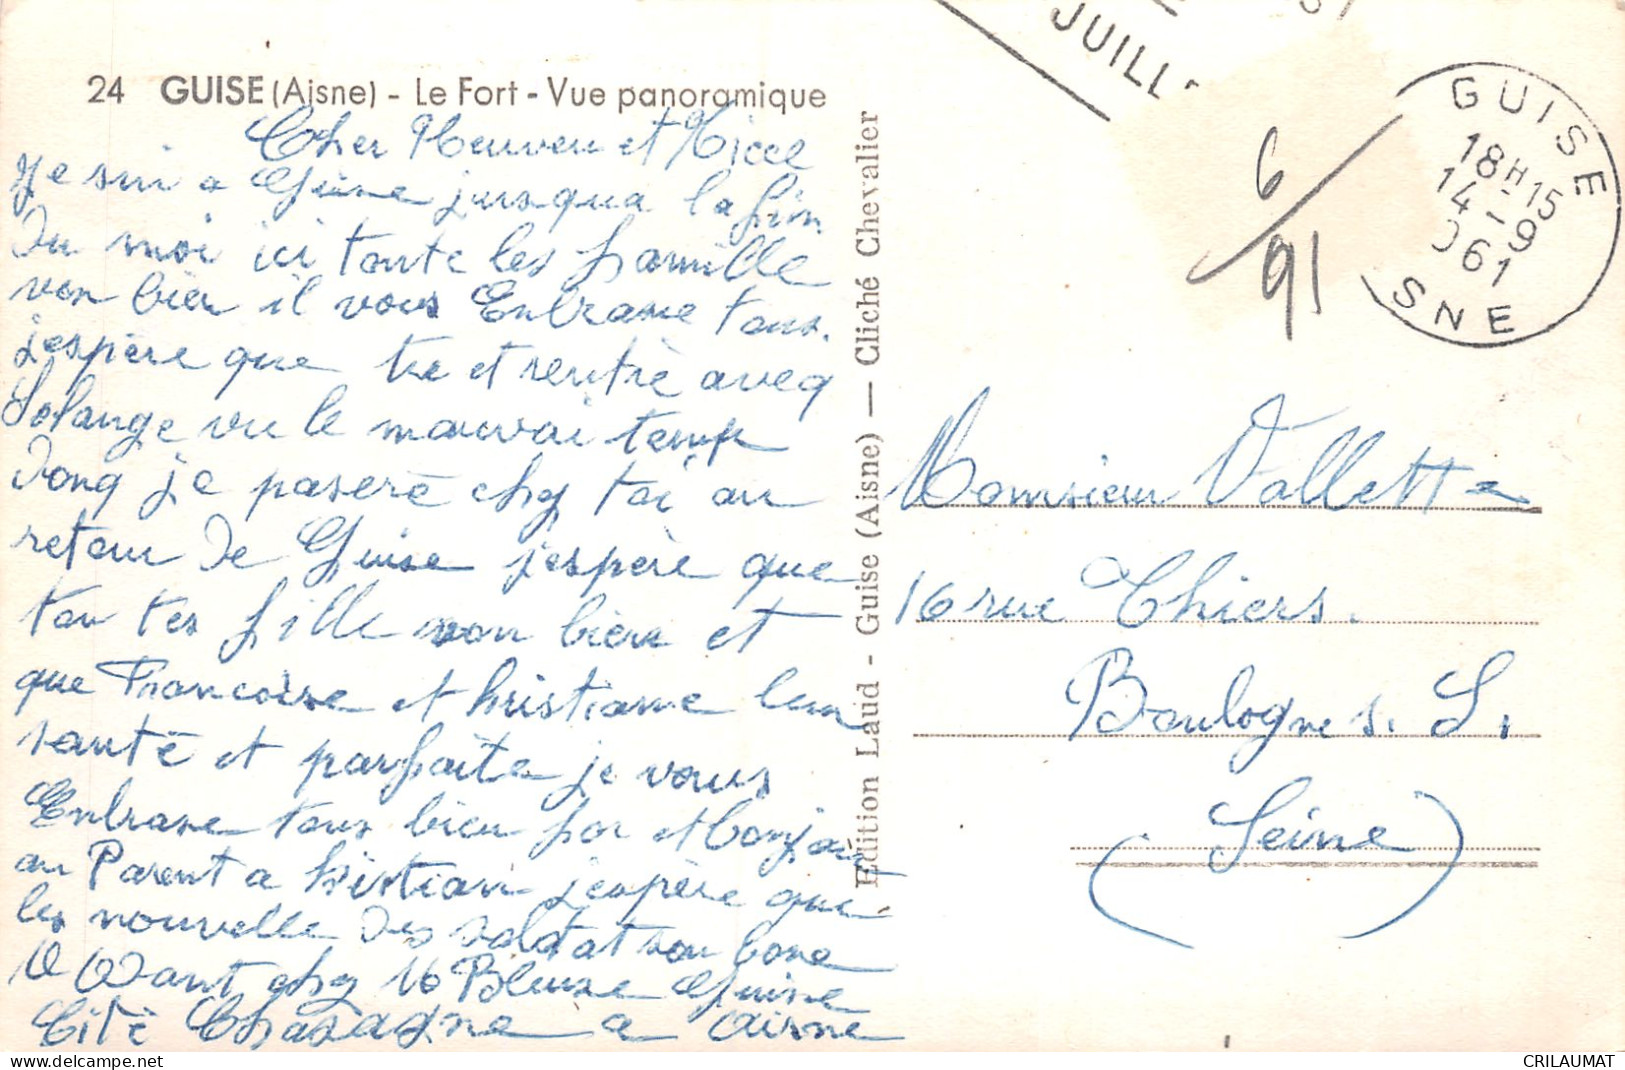 24 GUISE (Aisne) - Le Fort - Vue panoramique
Cher Neuveu et Niece
Je sui a Guise jusqua la fin
Du moi ici toute les famille
von bien il vous Enbrasse tous.
j'espère que tu et rentré aveq
Solange vu le mauvai temp
Donq je paserè chez toi au
retour De Guise j'espère que
tou tes fille von bien et
que Francoise et kristiane leur
santé et parfaite je vous
Enbrase tous bien for et Bonjour
au Parent a kristian j'espère que
les nouvelle des soldat son bone
chez Mr Bleuse Guise
Cité Chasagne a Aisne
Edition Laud - Guise (Aisne) — Cliché Chevalier
JUILL
6/91
GUISE
18H15
14-9
961
SNE
Monsieur Vallette
16 rue Thiers.
Boulogne s. S.
(Seine)
CRILAUMAT